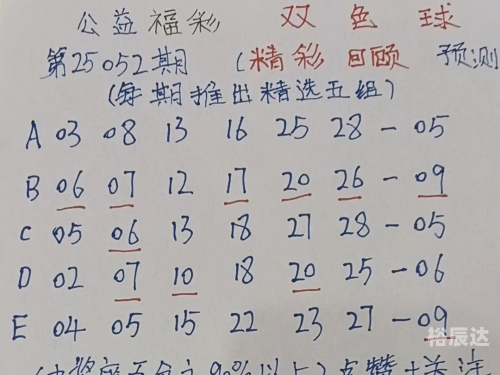 公益福彩 双色球
第25052期 (精彩回顾 预测
(每期推出精选五组)
A 03 08 13 16 25 28 - 05
B 06 07 12 17 20 26 - 09
C 05 06 13 18 27 28 - 05
D 02 07 10 18 20 25 - 06
E 04 05 15 22 23 27 - 09
裕辰达
90%以上) 点赞+关注